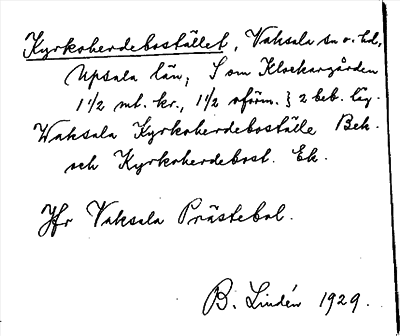 Kyrkoherdebostället, Vaksala sn o. hd,
Upsala län; S om Klockargården
1 1/2 mt. kr., 1 1/2 oförm. } 2 beb. läg.
Waksala Kyrkoherdeboställe Bek.
och Kyrkoherdebost. Ek.
Jfr Vaksala Prästebol.
B. Lindén 1929.